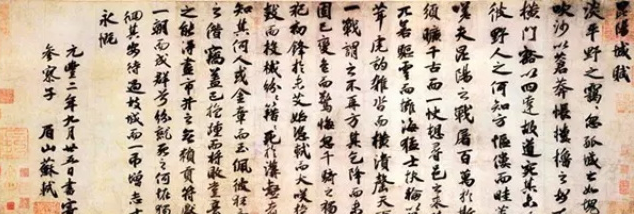 昆陽城賦
淡平野之靄忽孤城之如塊
吹沙以蒼莽悵樓櫓之
橫門豁以四達故道宛其未
彼野人之何知方傴僂而畦
嗟夫昆陽之戰屠百萬於斯
須曠千古而一快想尋邑之來
兀若驅雲而擁海猛士扶輪以
茸虎豹雜沓而橫潰罄天
一戰謂之不再方其乞降而未
固已變色而驚悔忽千騎之獨
犯初鋒於未艾始憑軾而大笑
鼓而投械紛籍死於溝壑
知其何人或金章而玉佩彼狂
之僭竊蓋已旋踵而將敗豈
之能得盡市井之無賴貢符
一朝而成群兮紛就死之何怪獨
其安待過故城而一弔增志士
永慨
元豐二年九月廿五日書寄
參寥子 眉山蘇軾